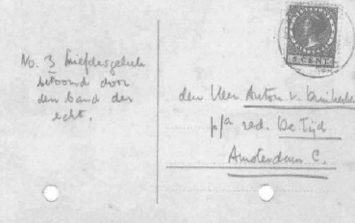 No. 3 Liefdesgeluk
bekroond door
den band des
echt.
5 CENT
den Heer Anton v. Duinkerken
p/a red. De Tijd
Amsterdam C.